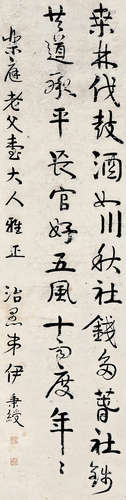 柔桑伐鼓酒如川秋社錢多春社錢
共道歌平長官好五風十雨度年〻
樂庭老父臺大人雅正　治愚弟伊秉綬